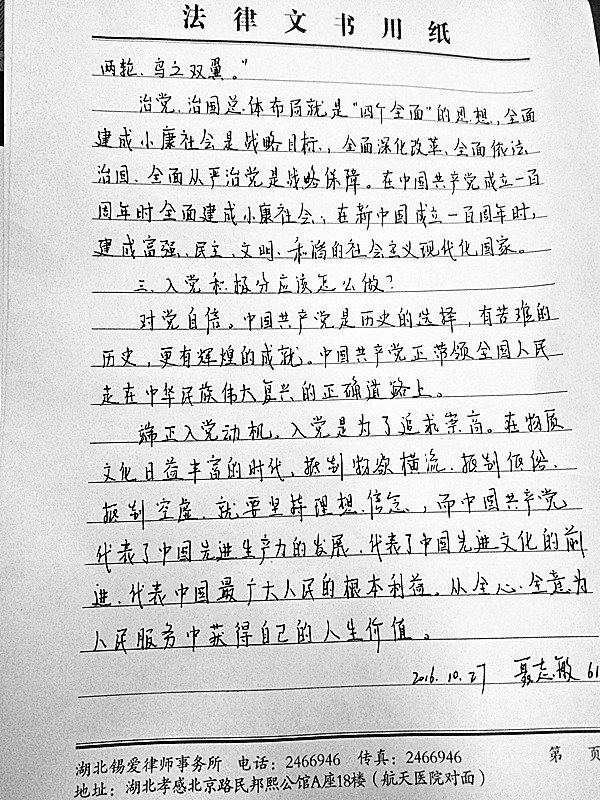 法律文书用纸
两轮、鸟之双翼。”
治党、治国总体布局就是“四个全面”的思想，全面
建成小康社会是战略目标，全面深化改革、全面依法
治国、全面从严治党是战略保障。在中国共产党成立一百
周年时全面建成小康社会；在新中国成立一百周年时，
建成富强、民主、文明、和谐的社会主义现代化国家。
三、入党积极分应该怎么做？
对党自信。中国共产党是历史的选择，有苦难的
历史，更有辉煌的成就。中国共产党正带领全国人民
走在中华民族伟大复兴的正确道路上。
端正入党动机，入党是为了追求崇高。在物质
文化日益丰富的时代，抵制物欲横流、抵制低俗、
抵制空虚、就要坚持理想、信念，而中国共产党
代表了中国先进生产力的发展、代表了中国先进文化的前
进、代表中国最广大人民的根本利益。从全心、全意为
人民服务中获得自己的人生价值。
2016.10.27 聂志敏 61
湖北锡爱律师事务所 电话：2466946 传真：2466946 第 页
地址：湖北孝感北京路民邦熙公馆A座18楼（航天医院对面）